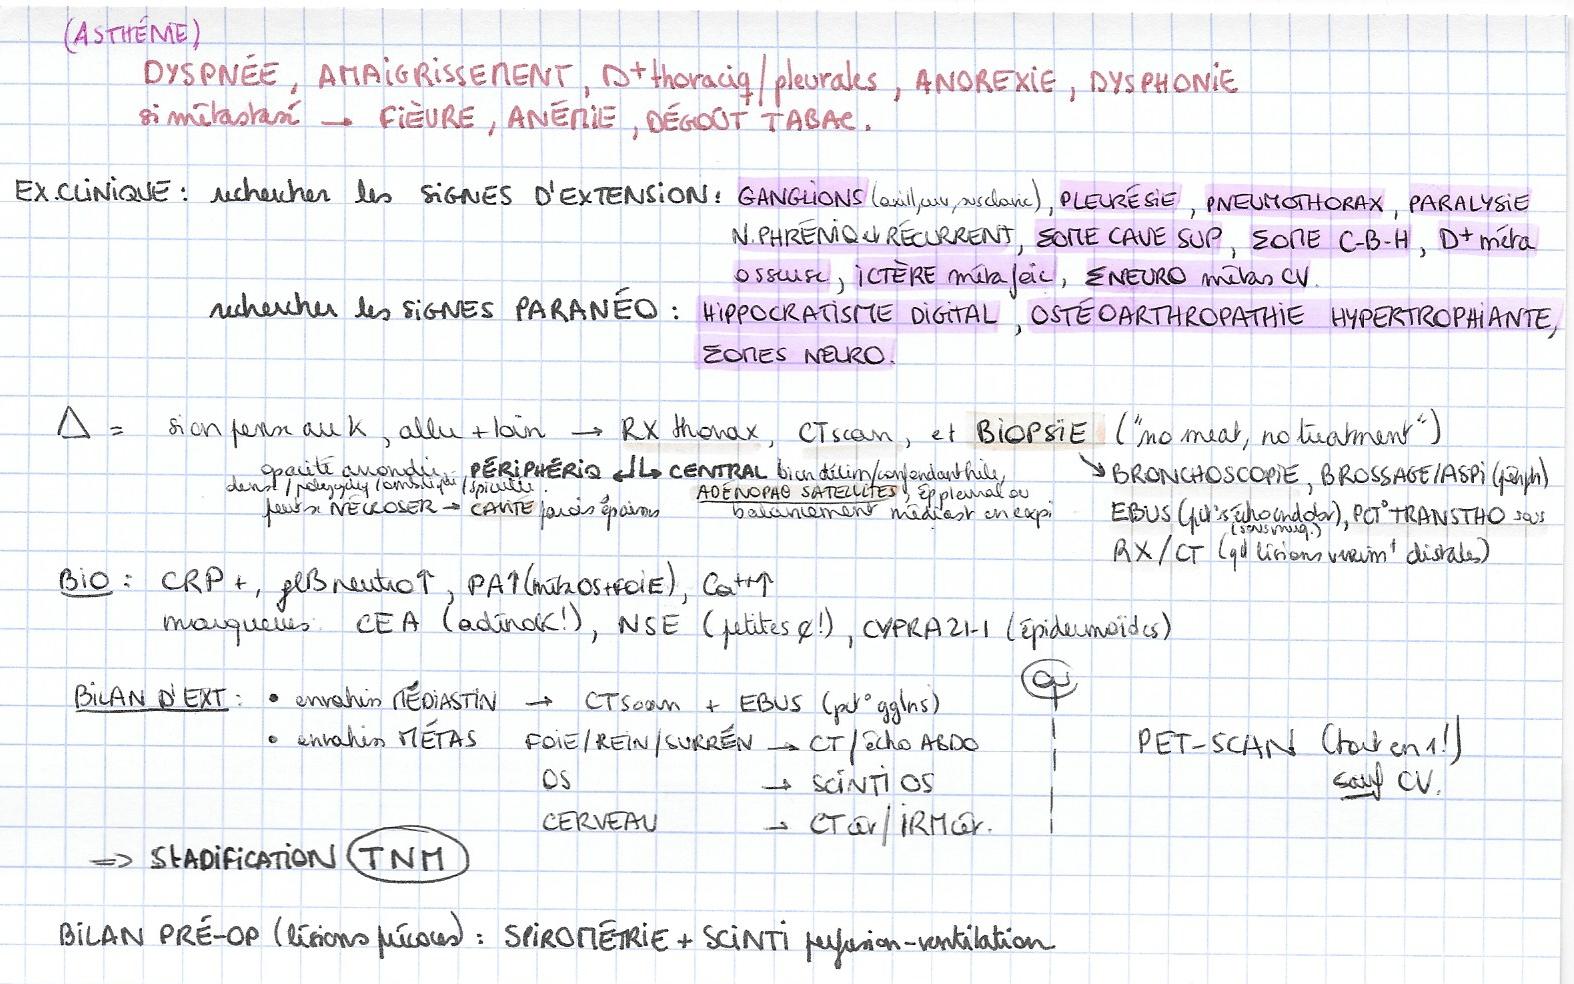 (ASTHÉNIE)
DYSPNÉE, AMAIGRISSEMENT, D+ thoraciq/pleurales, ANOREXIE, DYSPHONIE
si métastasé → FIÈVRE, ANÉMIE, DÉGOÛT TABAC.
EX.CLINIQUE : rechercher les SIGNES D'EXTENSION : GANGLIONS (axill, cerv, susclavic), PLEURÉSIE, PNEUMOTHORAX, PARALYSIE
N.PHRÉNIQ et RÉCURRENT, ΣOME CAVE SUP, ΣOME C-B-H, D+ méta
osseuse, ICTÈRE méta foie, ΣNEURO métas CV.
rechercher les SIGNES PARANÉO : HIPPOCRATISME DIGITAL, OSTÉOARTHROPATHIE HYPERTROPHIANTE,
ΣOMES NEURO.
Δ = si on pense au K, aller + loin → RX thorax, CTscan, et BIOPSIE ("no meat, no treatment")
opacité arrondie PÉRIPHÉRIQ ↲↳ CENTRAL bien délim/confondant hile,
dense/polycycliq/ombiliquée/spiculée. ADÉNOPAθ SATELLITES, ép pleural ou
peut se NÉCROSER → CAVITÉ parois épaisses balancement médiast en expi
↘ BRONCHOSCOPIE, BROSSAGE/ASPI (périph)
EBUS (pct°s échoendobr), PCT° TRANSTHO sous
RX/CT (qd lésions vraimt distales)
BIO : CRP +, glB neutro↑, PA↑ (méta OS+FOIE), Ca++↑
marqueurs CEA (adénoK!), NSE (petites ¢!), CYFRA 21-1 (épidermoïdes)
BILAN D'EXT : • envahis MÉDIASTIN → CTscan + EBUS (pct° gglns)
• envahis MÉTAS FOIE/REIN/SURRÉN → CT/écho ABDO
OS → SCINTI OS
CERVEAU → CT cér/IRM cér.
OU
PET-SCAN (tout en 1!)
sauf CV.
=> STADIFICATION TNM
BILAN PRÉ-OP (lésions précoces) : SPIROMÉTRIE + SCINTI perfusion-ventilation